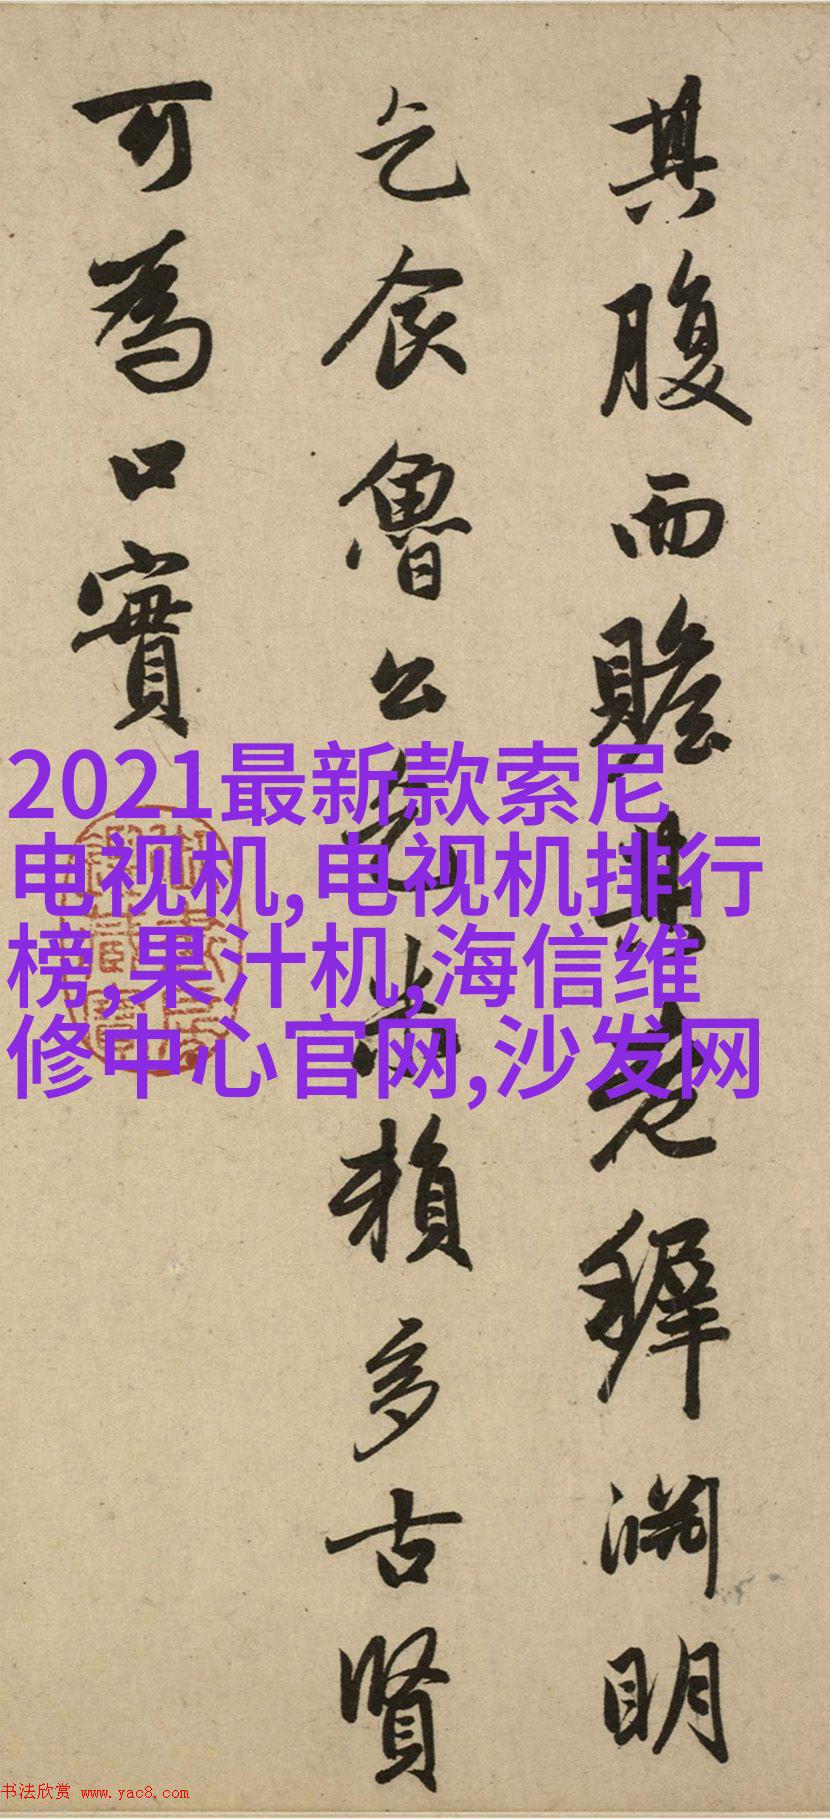 其腹而贍其老穉淵明
乞食魯公乞米賴多古
賢
可為口實
2021最新款索尼
电视机,电视机排行
榜,果汁机,海信维
修中心官网,沙发网
书法欣赏 www.yac8.com